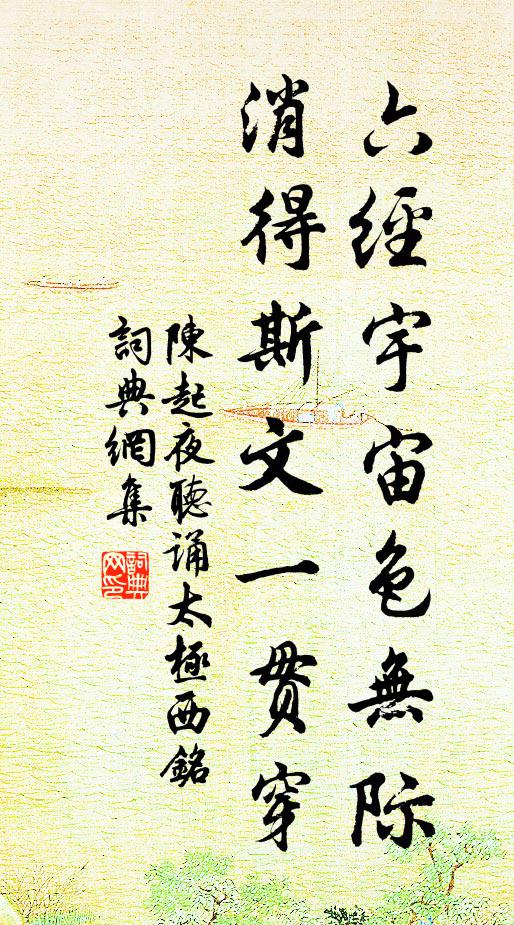 六經宇宙色無际
消得斯文一贯穿
陳起夜聽诵太極西銘
詞典網集
詞典网印